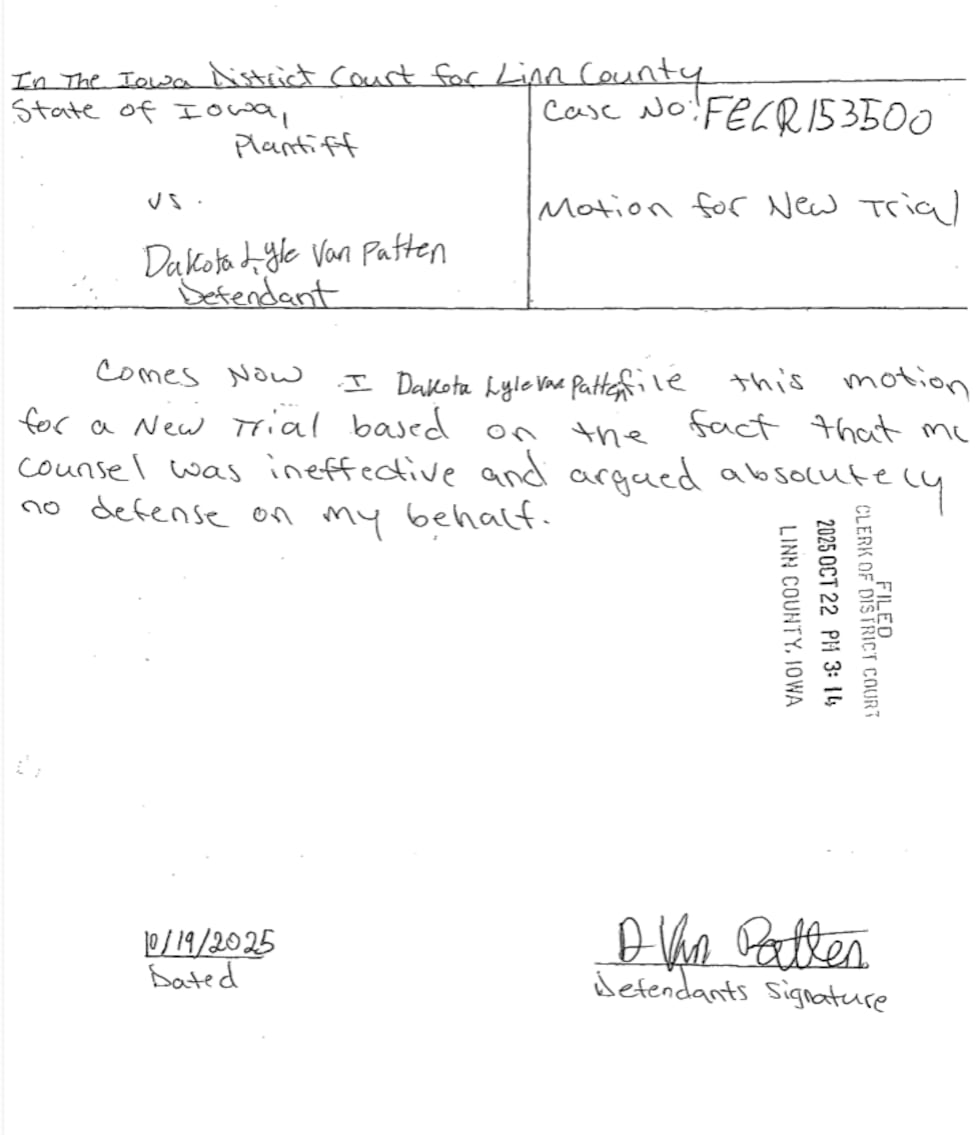 In The Iowa District Court for Linn County
State of Iowa,
Plantiff
vs.
Dakota Lyle Van Patten
Defendant
Case No: FECR153500
Motion for New Trial
Comes Now I Dakota Lyle Van Patten file this motion
for a New Trial based on the fact that
counsel was ineffective and argued absolutely
no defense on my behalf.
FILED
CLERK OF DISTRICT COURT
2025 OCT 22 PM 3:14
LINN COUNTY, IOWA
10/19/2025
Dated
D Van Patten
Defendants Signature